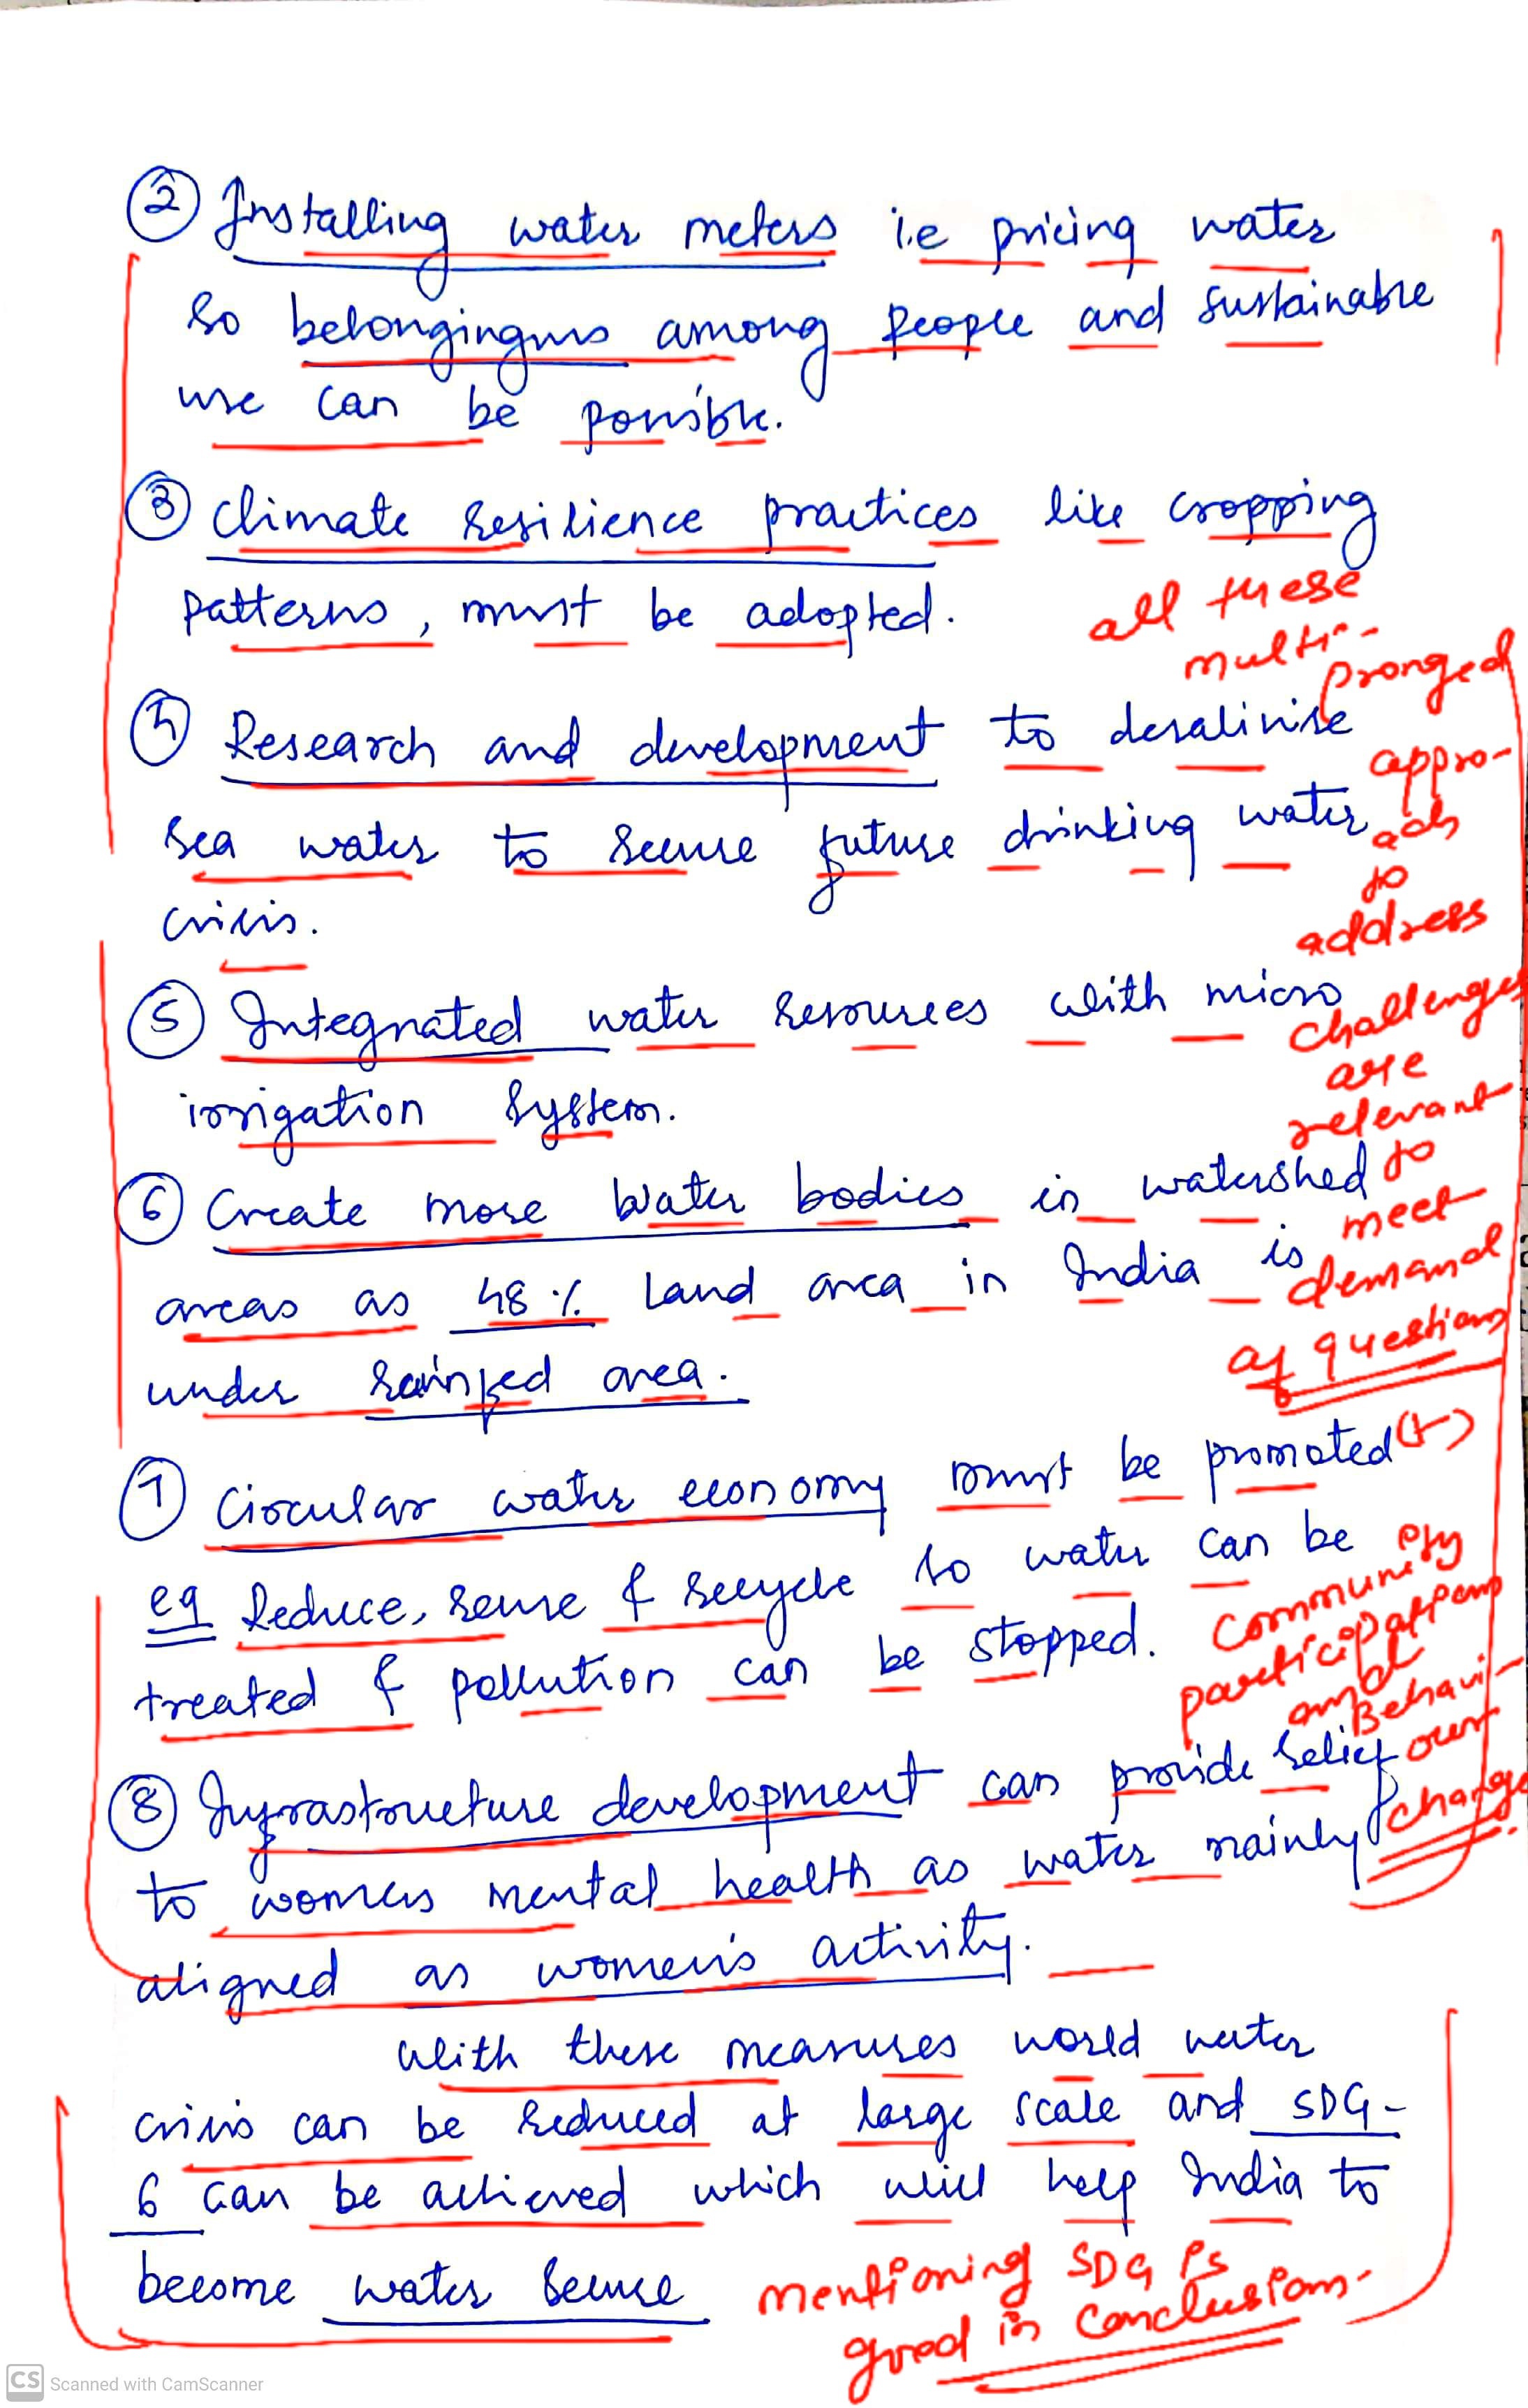 ② Installing water meters i.e pricing water
so belongingness among people and sustainable
use can be possible.
③ Climate resilience practices like cropping
patterns, must be adopted.
④ Research and development to desalinise
sea water to secure future drinking water
crisis.
⑤ Integrated water resources with micro
irrigation system.
⑥ Create more water bodies in watershed
areas as 48% land area in India is
under rainfed area.
all these
multi-
pronged
appro-
ach
to
address
challenges
are
relevant
to
meet
demand
of question
⑦ Circular water economy must be promoted
eg Reduce, reuse & recycle so water can be
treated & pollution can be stopped.
⑧ Infrastructure development can provide relief
to womens mental health as water mainly
aligned as women's activity.
(+)
community
participation
and
Behavi-
our
change
With these measures world water
crisis can be reduced at large scale and SDG-
6 can be achieved which will help India to
become water secure
mentioning SDG is
good in conclusion.
CS Scanned with CamScanner